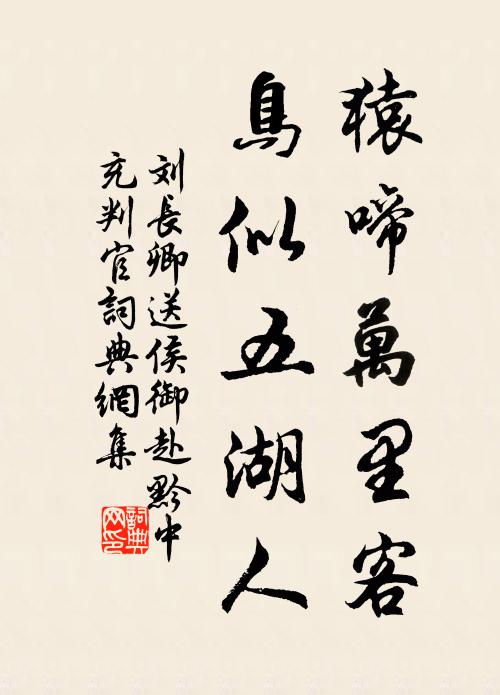 猿啼萬里客
鳥似五湖人
刘長卿送侯御赴黔中
充判官詞典網集
詞典
网